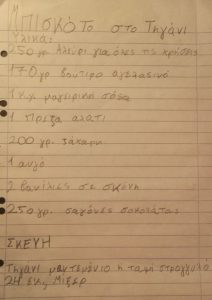 Μπισκότο στο Τηγάνι
Υλικα:
250 γρ. Αλεύρι για όλες τις χρήσεις
170 γρ βουτυρο αγελαδινό
1 κ.γ μαγειρική σόδα
1 Πρέζα αλάτι
200 γρ. ζαχαρη
1 αυγό
2 βανίλιες σε σκόνη
250 γρ. σταγόνες σοκολάτας
ΣΚΕΥΗ
Τηγάνι μαντεμένιο ή ταψί στρογγυλό
24 εκ, Μίξερ